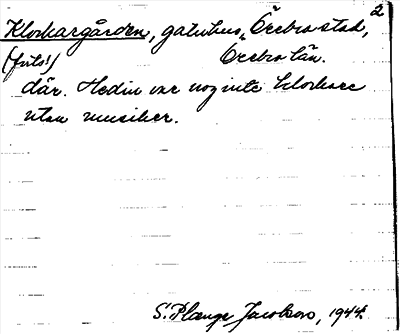 2
Klockargården, gatuhus, Örebro stad,
(foto!) Örebro län.
där. Hedin var nog inte klockare
utan musiker.
S. Plange Jacobson, 1944.